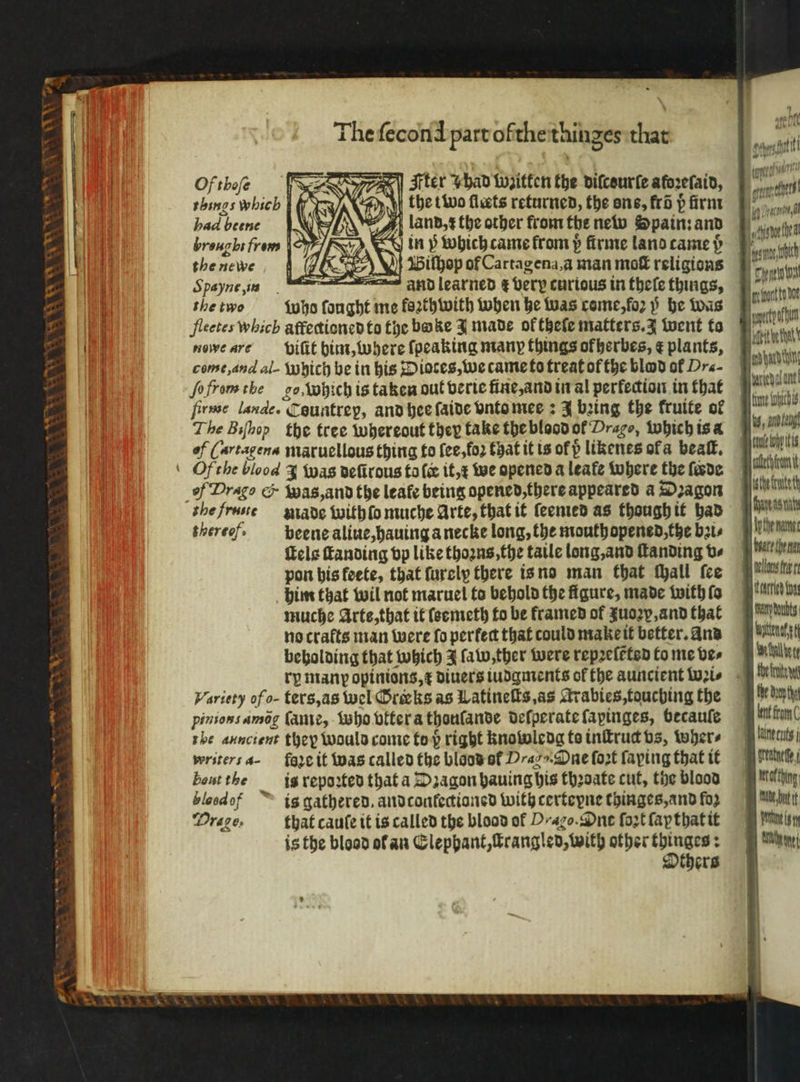 The second part of the thinges that
Of those
things which
had beene
brought from
the newe
Spayne, in
the two
fleetes which
nowe are
come, and al-
so from the
firme lande.
The Bishop
of Cartagena
After I had written the discourse aforesaid,
the two fleets returned, the one, frō yͤ firm
land, & the other from the new Spain: and
in yͤ which came from yͤ firme land came yͤ
Bishop of Cartagena, a man most religious
and learned & very curious in these things,
who sought me forthwith when he was come, for yͭ he was
affectioned to the booke I made of these matters. I went to
visit him, where speaking many things of herbes, & plants,
which be in his Dioces, we came to treat of the blood of Dra-
go, which is taken out verie fine, and in al perfection in that
Countrey, and hee saide vnto mee: I bring the fruite of
the tree whereout they take the blood of Drago, which is a
maruellous thing to see, for that it is of yͤ likenes of a beast.
Of the blood
of Drago &
the fruite
thereof.
I was desirous to see it, & we opened a leafe where the seede
was, and the leafe being opened, there appeared a Dragon
made with so muche Arte, that it seemed as though it had
beene aliue, hauing a necke long, the mouth opened, the bri-
stels standing vp like thorns, the taile long, and standing v-
pon his feete, that surely there is no man that shall see
him that wil not maruel to behold the figure, made with so
muche Arte, that it seemeth to be framed of Juory, and that
no crafts man were so perfect that could make it better. And
beholding that which I saw, ther were represēted to me ve-
ry many opinions, & diuers iudgments of the auncient wri-
Variety of o-
pinions amōg
the auncient
writers a-
bout the
blood of
Drago.
ters, as wel Greeks as Latinests, as Arabies, touching the
same, who vtter a thousande desperate sayinges, because
they would come to yͤ right knowledg to instruct vs, wher-
fore it was called the blood of Drago. One sort saying that it
is reported that a Dragon hauing his throate cut, the blood
is gathered, and confectioned with certeyne thinges, and for
that cause it is called the blood of Drago. One sort say that it
is the blood of an Elephant, strangled, with other thinges:
Others